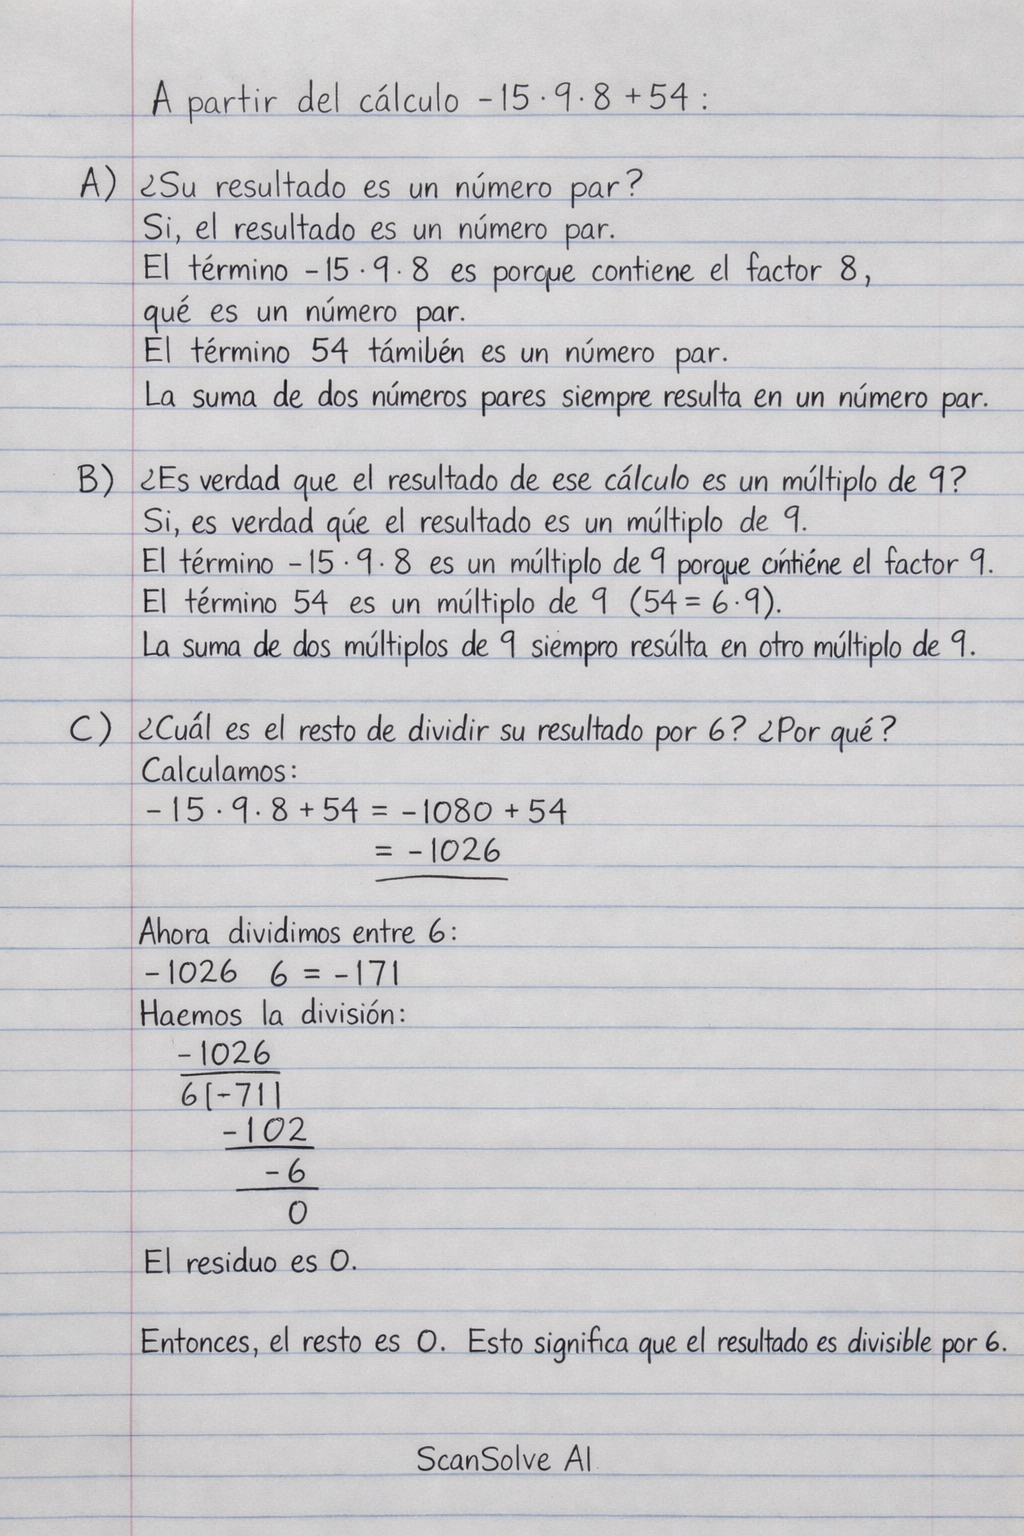 A partir del cálculo -15·9·8+54:
A) ¿Su resultado es un número par?
Si, el resultado es un número par.
El término -15·9·8 es porque contiene el factor 8,
qué es un número par.
El término 54 támibén es un número par.
La suma de dos números pares siempre resulta en un número par.
B) ¿Es verdad que el resultado de ese cálculo es un múltiplo de 9?
Si, es verdad qúe el resultado es un múltiplo de 9.
El término -15·9·8 es un múltiplo de 9 porque cńtiéne el factor 9.
El término 54 es un múltiplo de 9 (54=6·9).
La suma de dos múltiplos de 9 siempro resúlta en otro múltiplo de 9.
C) ¿Cuál es el resto de dividir su resultado por 6? ¿Por qué?
Calculamos:
-15·9·8+54 = -1080+54
= -1026
Ahora dividimos entre 6:
-1026 6 = -171
Haemos la división:
-1026
6[-71]
-102
-6
0
El residuo es 0.
Entonces, el resto es 0. Esto significa que el resultado es divisible por 6.
ScanSolve AI